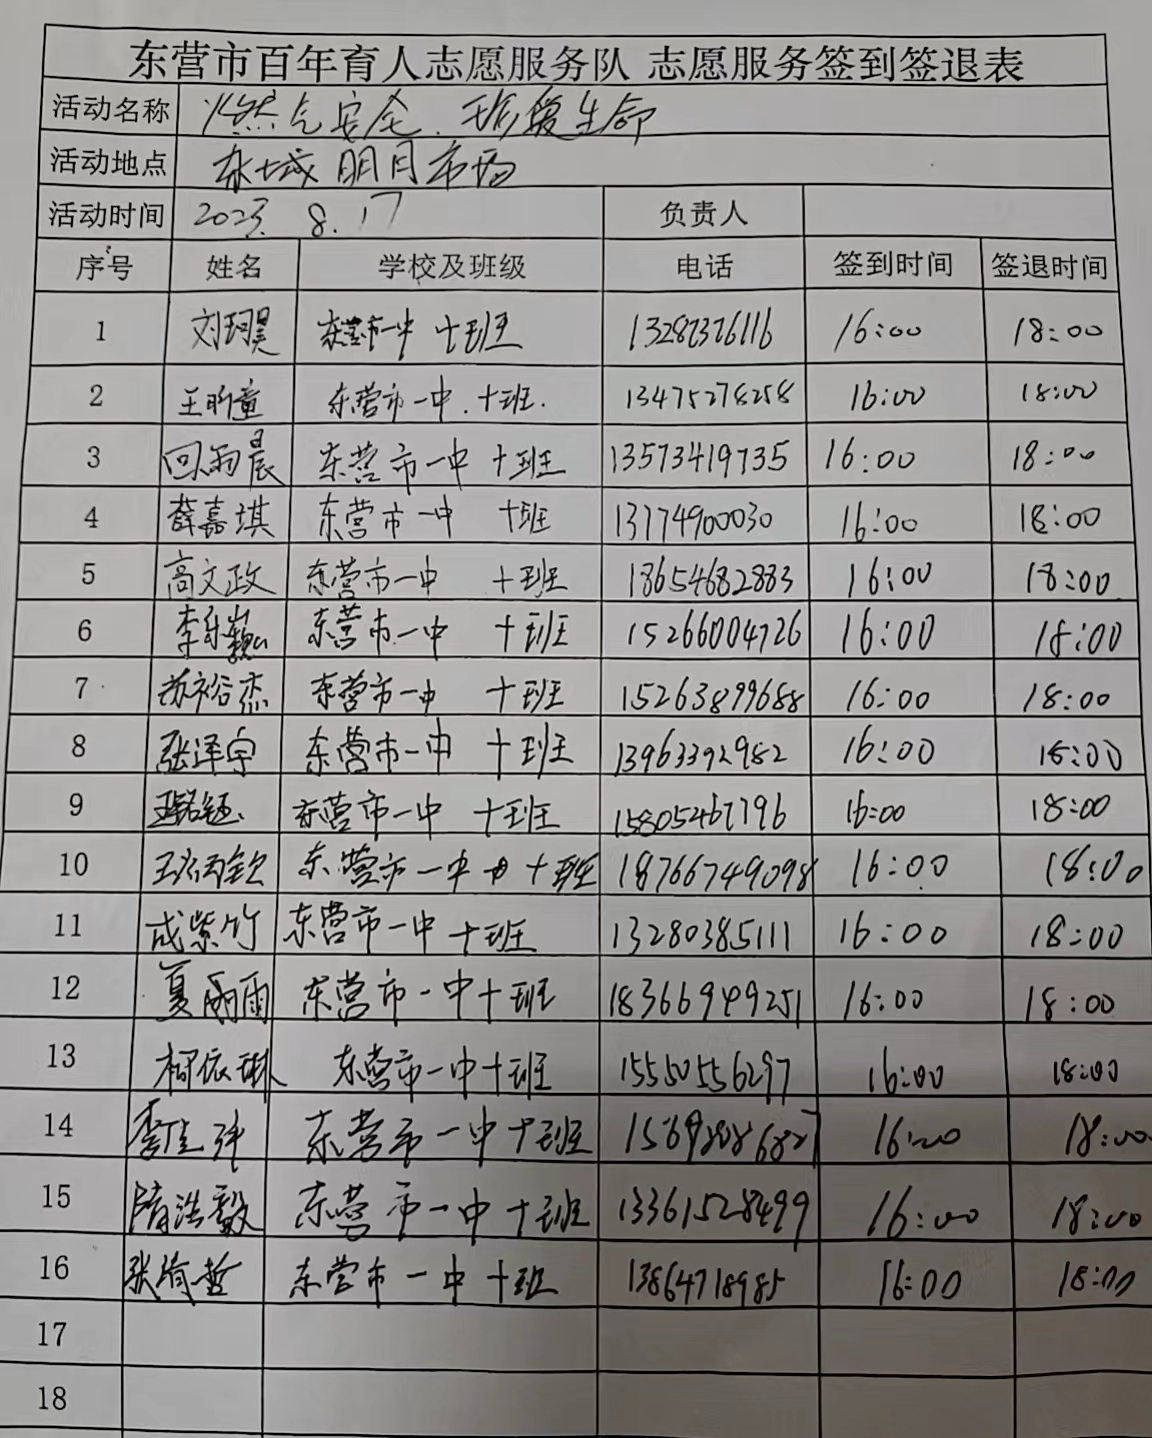 东营市百年育人志愿服务队 志愿服务签到签退表
活动名称 燃气安全.珍爱生命
活动地点 东城明月市场
活动时间 2023.8.17 负责人
序号 姓名 学校及班级 电话 签到时间 签退时间
1 刘珂昊 东营市一中 十班 13287376116 16:00 18:00
2 王昕童 东营市一中.十班. 13475278258 16:00 18:00
3 回雨晨 东营市一中 十班 13573419735 16:00 18:00
4 薛嘉琪 东营市一中 十班 13174900030 16:00 18:00
5 高文政 东营市一中 十班 18654682883 16:00 18:00
6 李乐巍 东营市一中 十班 15266004726 16:00 18:00
7 苏裕杰 东营市一中 十班 15263899688 16:00 18:00
8 张泽宇 东营市一中 十班 13963392982 16:00 18:00
9 东营市一中 十班 15805467796 16:00 18:00
10 东营市一中 十班 18766749098 16:00 18:00
11 成紫竹 东营市一中 十班 13280385111 16:00 18:00
12 夏雨雨 东营市一中十班 18366949251 16:00 18:00
13 柯依琳 东营市一中十班 15550556297 16:00 18:00
14 东营市一中十班 16:00 18:00
15 隋浩毅 东营市一中十班 13361528499 16:00 18:00
16 张倚哲 东营市一中十班 13864718985 16:00 18:00
17
18